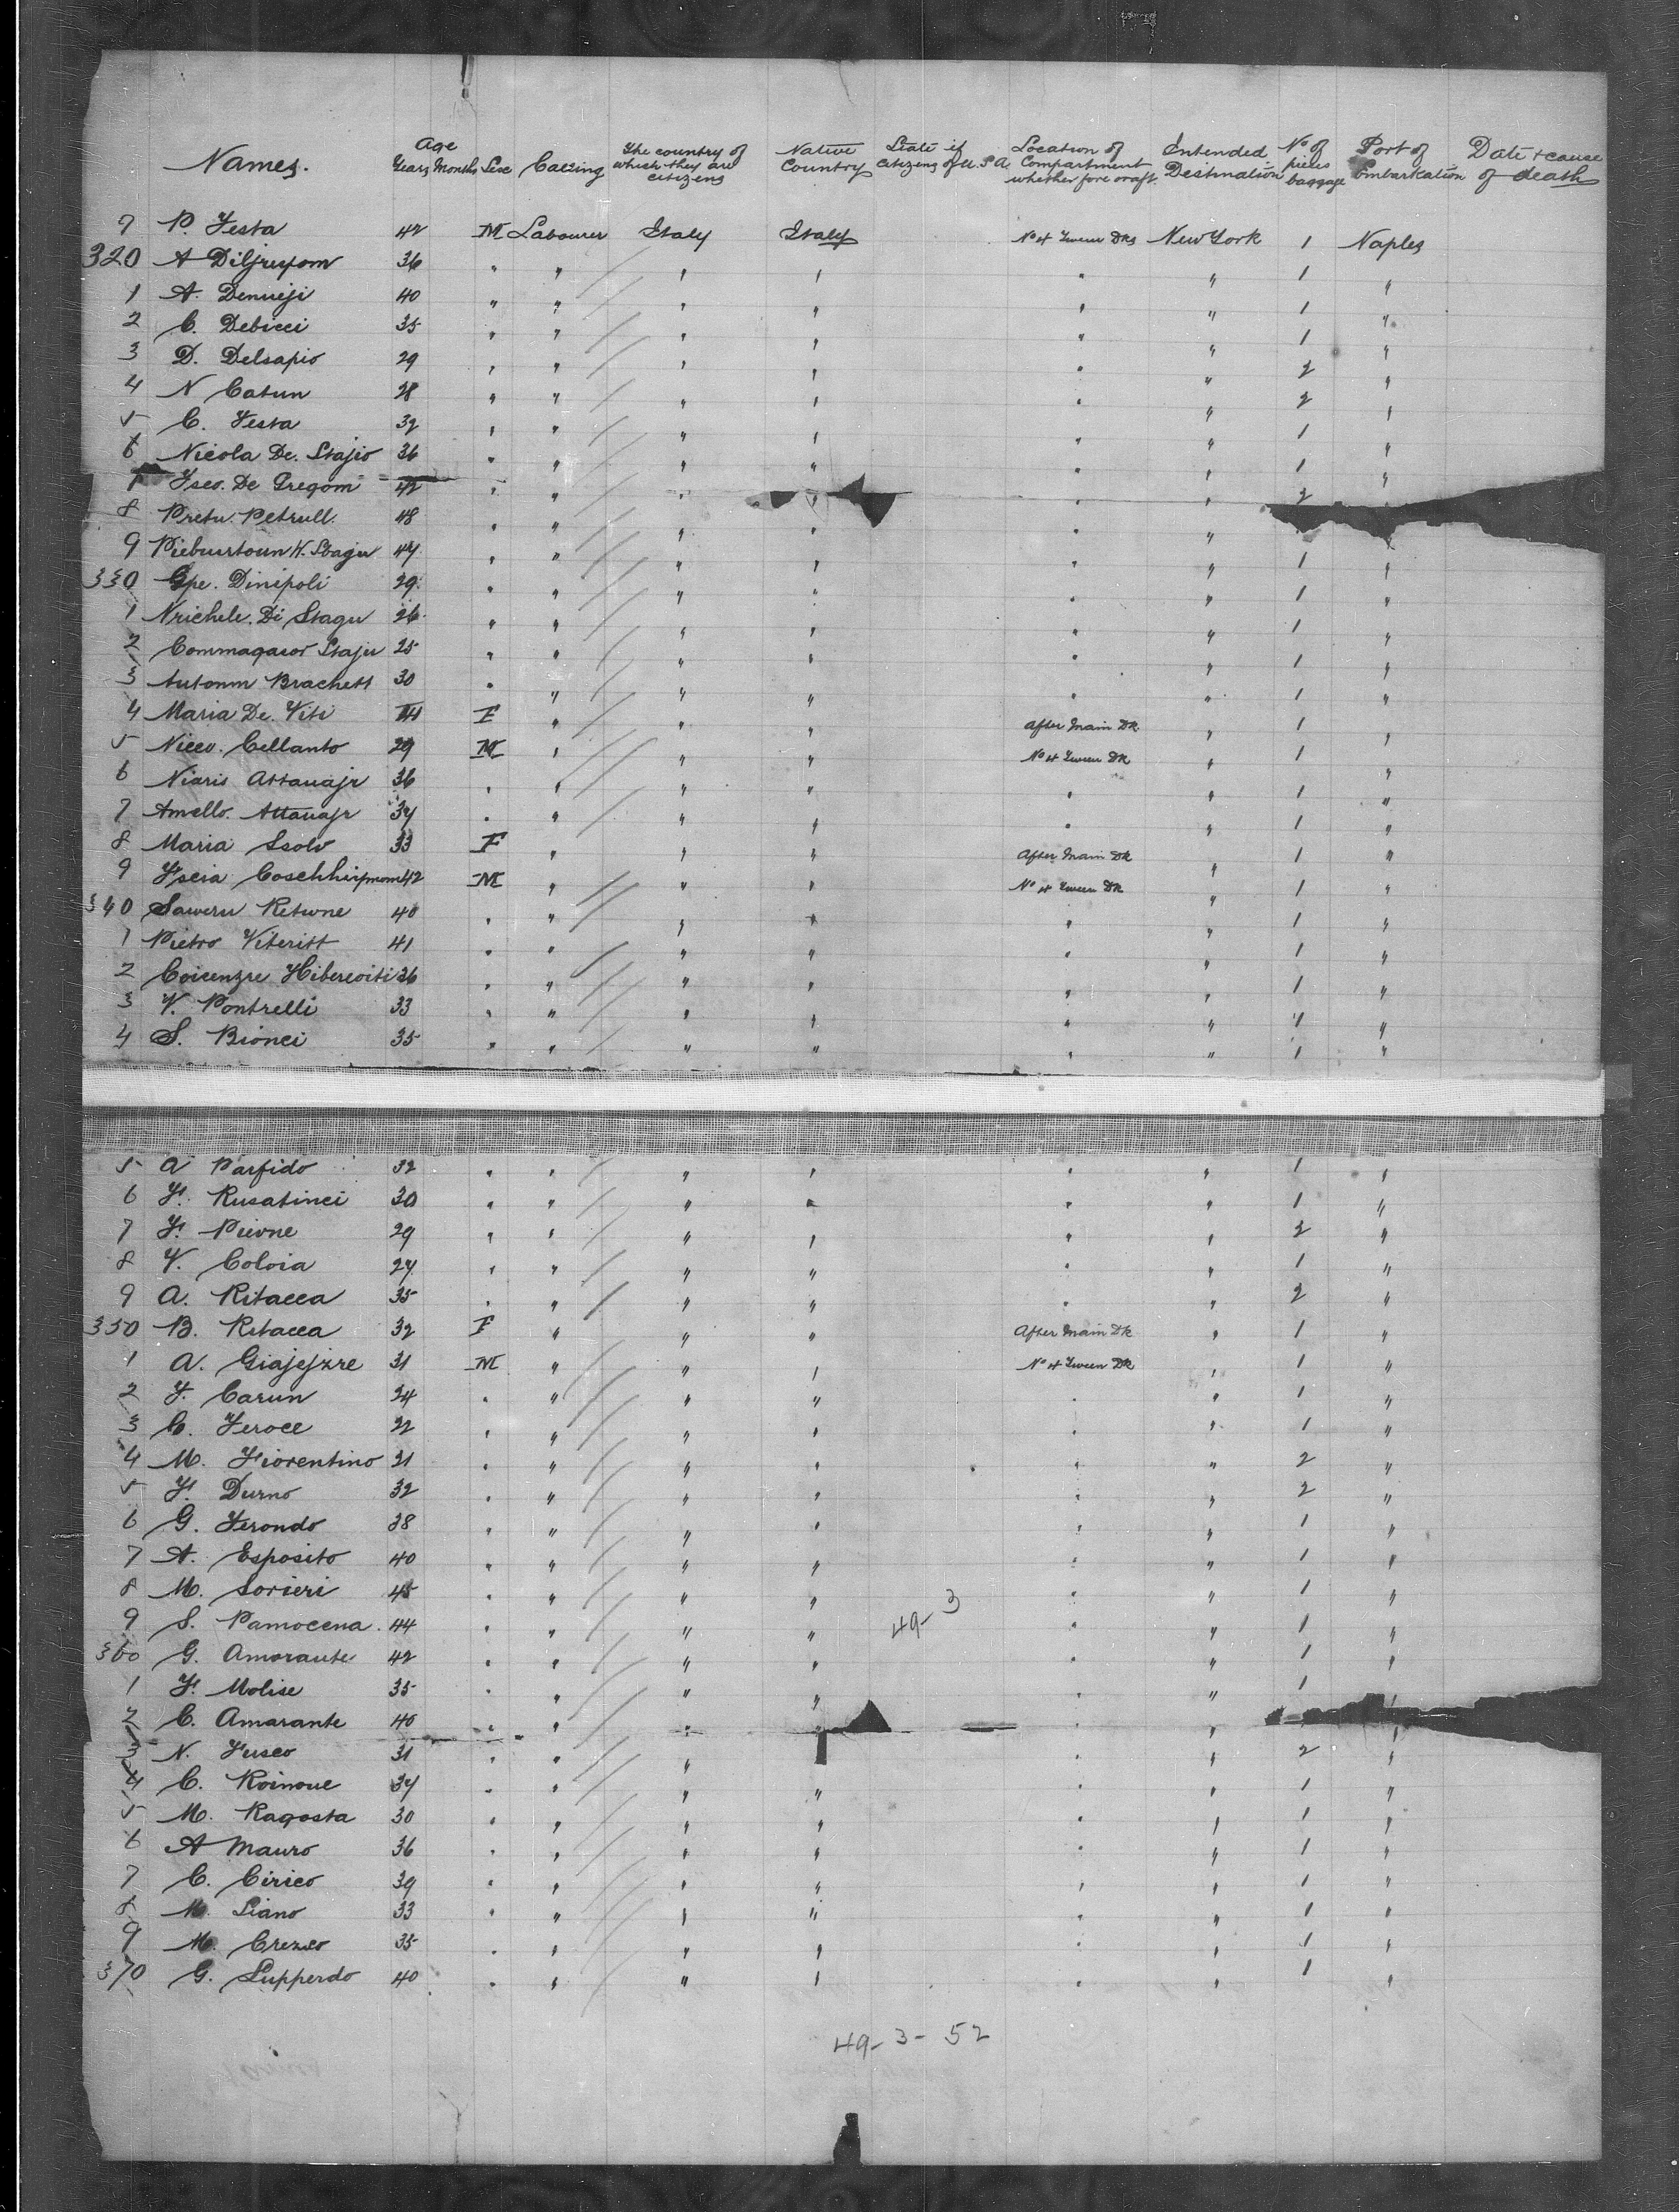 Names. Age Years Months Sex Calling The country of which they are citizens Native Country State if Citizens of U.S.A. Location of Compartment whether fore or aft. Intended Destination No of pieces baggage Port of Embarkation Date + cause of death
9 P. Festa 42 M Labourer Italy Italy No 4 Tween Dks New York 1 Naples
320 A 36 " " " " " " 1 "
1 A. 40 " " " " " " 1 "
2 C. Debicci 35 " " " " " " 1 "
3 D. Delsapio 29 " " " " " " 2 "
4 N Catun 28 " " " " " " 2 "
5 C. Festa 32 " " " " " " 1 "
6 Nicola De. Stajio 36 " " " " " " 1 "
7 Fsco. De Gregom 42 " " " " " " 2
8 Pretu. Petrull. 48 " " " " " "
9 Stagu 47 " " " " " " 1 "
330 Gpe. Dinipoli 29 " " " " " " 1 "
1 Nrichele. Di Stagu 26 " " " " " " 1 "
2 Staju 25 " " " " " " 1 "
3 Autonm Brachett 30 " " " " " " 1 "
4 Maria De. Viti F " " " After Main Dk " 1 "
5 Nicco. Cellanto 29 M " " " No 4 Tween Dk " 1 "
6 Niaris Attauajr 36 " " " " " " 1 "
7 Amello. Attauajr 34 " " " " " " 1 "
8 Maria Ssolv 33 F " " " After Main Dk " 1 "
9 Fscia 42 M " " " No 4 Tween Dk " 1 "
340 Saweru Retwne 40 " " " " " " 1 "
1 Pietro Viteritt 41 " " " " " " 1 "
2 Coicenzre 36 " " " " " " 1 "
3 V. Pontrelli 33 " " " " " " 1 "
4 S. Bionci 35 " " " " " " 1 "
5 A Parfido 32 " " " " " " 1 "
6 F. Rusatinci 30 " " " " " " 1 "
7 F. Pievne 29 " " " " " " 2 "
8 V. Coloia 27 " " " " " " 1 "
9 A. Ritacca 35 " " " " " " 2 "
350 B. Ritacca 32 F " " " After Main Dk " 1 "
1 A. 31 M " " " No 4 Tween Dk " 1 "
2 F. Carun 24 " " " " " " 1 "
3 C. Feroce 22 " " " " " " 1 "
4 M. Fiorentino 31 " " " " " " 2 "
5 F. Durno 32 " " " " " " 2 "
6 G. Ferondo 38 " " " " " " 1 "
7 A. Esposito 40 " " " " " " 1 "
8 M. Sorieri 45 " " " " " " 1 "
9 S. Pamocena 44 " " " 49-3 " " 1 "
360 G. Amorante 42 " " " " " " 1 "
1 F. Molise 35 " " " " " " 1 "
2 C. Amarante 40 " " " " " " "
3 N. Fusco 31 " " " " " 2 "
4 C. Roinoue 34 " " " " " " 1 "
5 M. Ragosta 30 " " " " " " 1 "
6 A Mauro 36 " " " " " " 1 "
7 C. Cirico 39 " " " " " " 1 "
8 M. Liano 33 " " " " " " 1 "
9 M. 35 " " " " " " 1 "
370 G. Lupperdo 40 " " " " " " 1 "
49-3-52